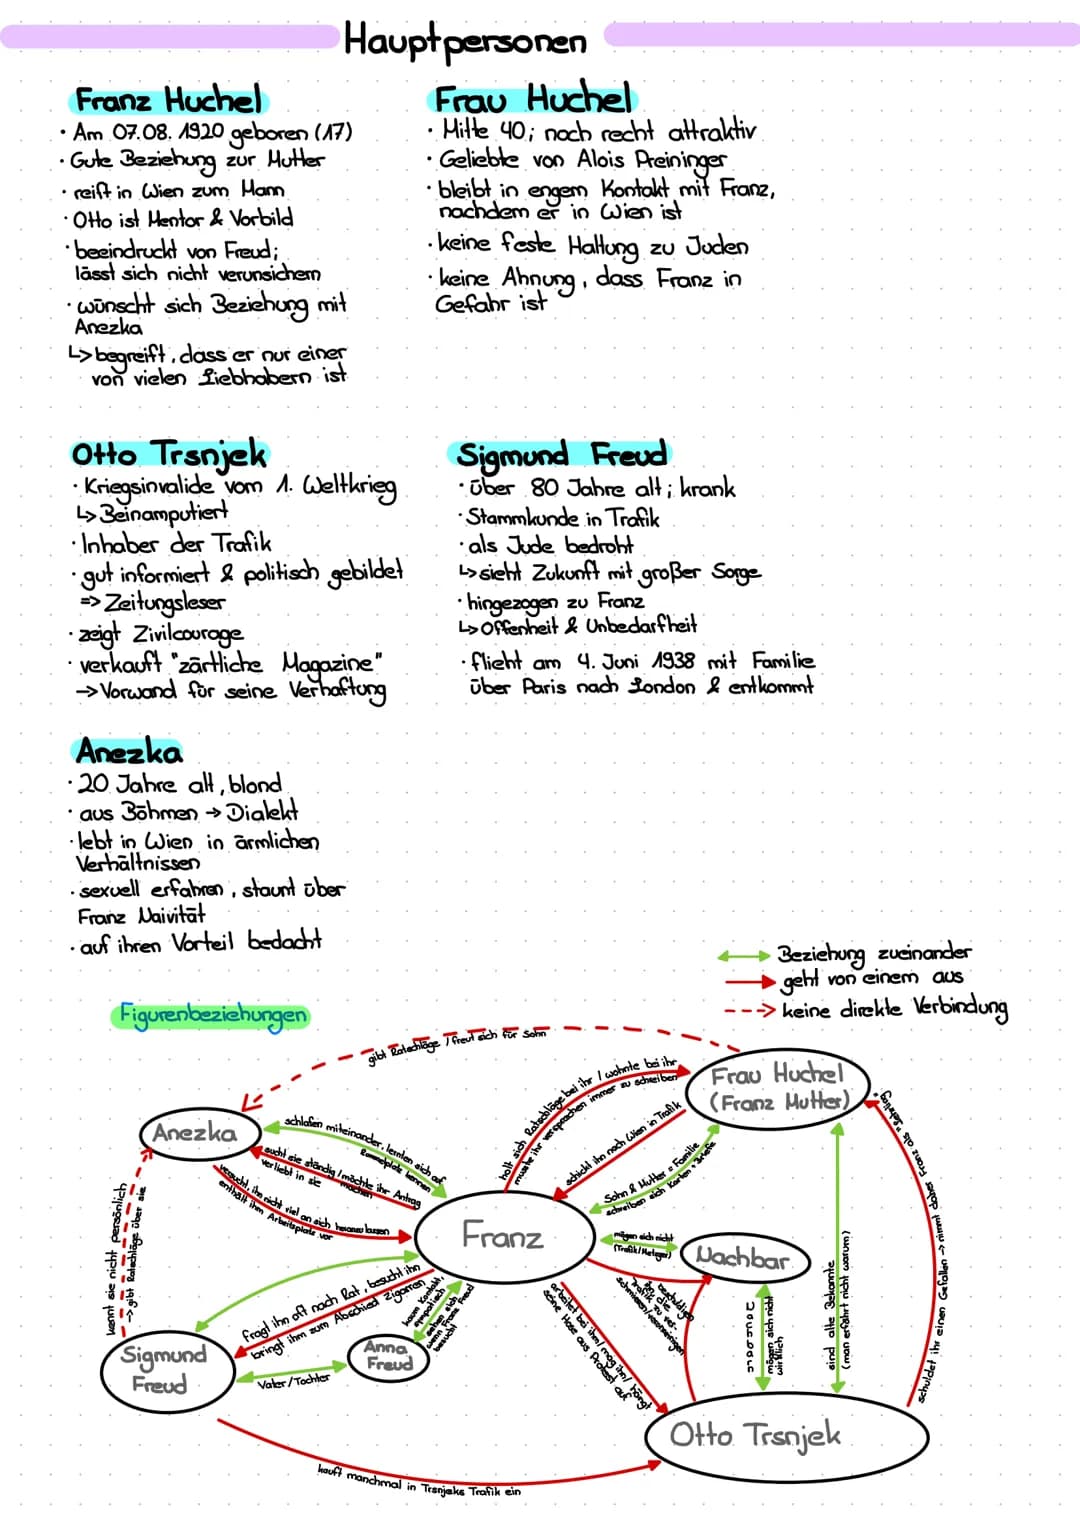 Hauptpersonen
Franz Huchel
• Am 07.08.1920 geboren (17)
• Gute Beziehung zur Mutter
• reift in Wien zum Mann
• Otto ist Mentor & Vorbild
• beeindruckt von Freud;
lässt sich nicht verunsichern
• wünscht sich Beziehung mit
Anezka
↳> begreift, dass er nur einer
von vielen Liebhabern ist
Frau Huchel
• Mitte 40; noch recht attraktiv
• Geliebte von Alois Preininger
• bleibt in engem Kontakt mit Franz,
nachdem er in Wien ist
• keine feste Haltung zu Juden
• keine Ahnung, dass Franz in
Gefahr ist
Otto Trsnjek
• Kriegsinvalide vom 1. Weltkrieg
↳> Beinamputiert
• Inhaber der Trafik
• gut informiert & politisch gebildet
=> Zeitungsleser
• zeigt Zivilcourage
• verkauft "zärtliche Magazine"
→ Vorwand für seine Verhaftung
Sigmund Freud
• über 80 Jahre alt; krank
• Stammkunde in Trafik
• als Jude bedroht
↳> sieht Zukunft mit großer Sorge
• hingezogen zu Franz
↳> Offenheit & Unbedarftheit
• flieht am 4. Juni 1938 mit Familie
über Paris nach London & entkommt
Anezka
• 20 Jahre alt, blond
• aus Böhmen → Dialekt
• lebt in Wien in ärmlichen
Verhältnissen
• sexuell erfahren, staunt über
Franz Naivität
• auf ihren Vorteil bedacht
Beziehung zueinander
geht von einem aus
keine direkte Verbindung
Figurenbeziehungen
gibt Ratschläge / freut sich für Sohn
Frau Huchel
(Franz Mutter)
Anezka
schlafen miteinander, lernten sich auf
Rummelplatz kennen
sucht sie ständig / möchte ihr Antrag
machen
verliebt in sie
versucht, ihn nicht viel an sich heranzulassen
enthält ihm Arbeitsplatz vor
holt sich Ratschläge bei ihr / wohnte bei ihr
musste ihr versprechen immer zu schreiben
schickt ihn nach Wien in Trafik
Sohn & Mutter = Familie
schreiben sich Karten + Briefe
Franz
mögen sich nicht
(Trafik/Metzger)
Nachbar
kennt sie nicht persönlich
→ gibt Ratschläge über sie
fragt ihn oft nach Rat, besucht ihn
bringt ihm zum Abschied Zigarren
kaum Kontakt,
sympatisch
sehen sich
wenn Franz Freud
besucht
beschuldigen
ihn die
Trafik zu ver-
schmieren/verunreinigen
arbeitet bei ihm / mag ihn / hängt
seine Hose aus Protest auf
Nachbarn
mögen sich nicht
wirklich
sind alte Bekannte
(man erfährt nicht warum)
schuldet ihr einen Gefallen → nimmt daher Franz als
Sigmund
Freud
Anna
Freud
Vater/Tochter
Otto Trsnjek
kauft manchmal in Trsnjeks Trafik ein